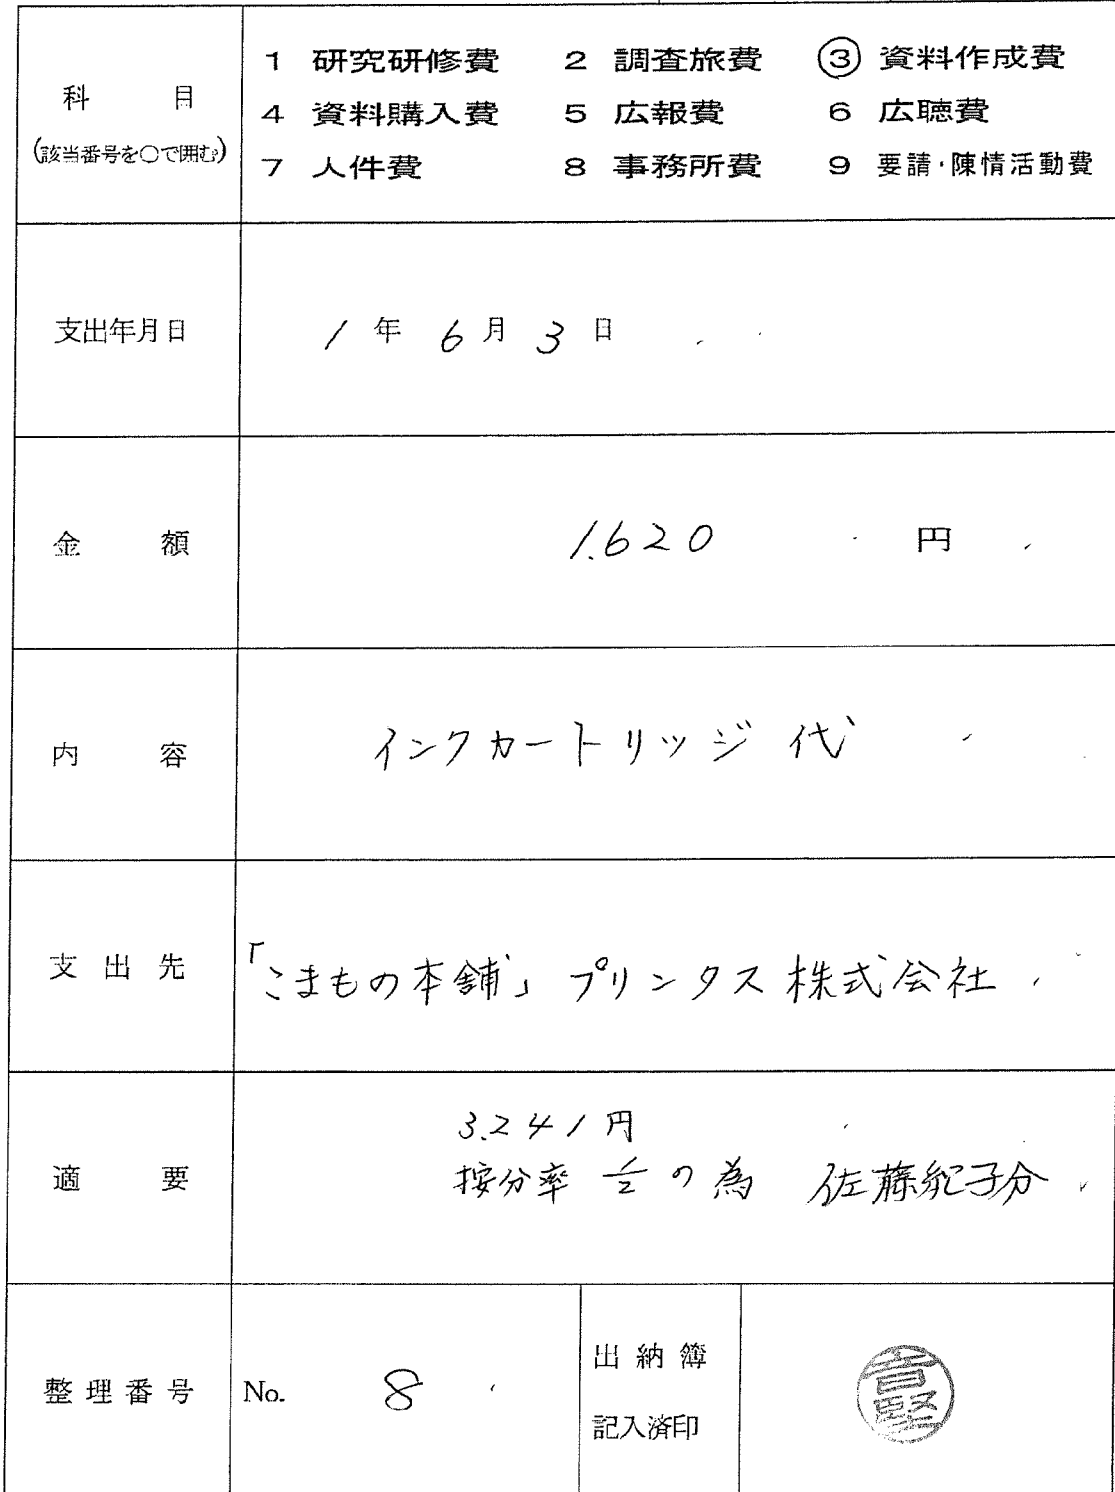 科 目
(該当番号を○で囲む)
1 研究研修費 2 調査旅費 ③ 資料作成費
4 資料購入費 5 広報費 6 広聴費
7 人件費 8 事務所費 9 要請・陳情活動費
支出年月日 1 年 6 月 3 日
金 額 1.620 円
内 容 インクカートリッジ 代
支 出 先 「こまもの本舗」 プリンタス 株式会社
適 要
3.241円
按分率 1/2 の為 佐藤紀子分
整 理 番 号 No. 8
出 納 簿
記入済印